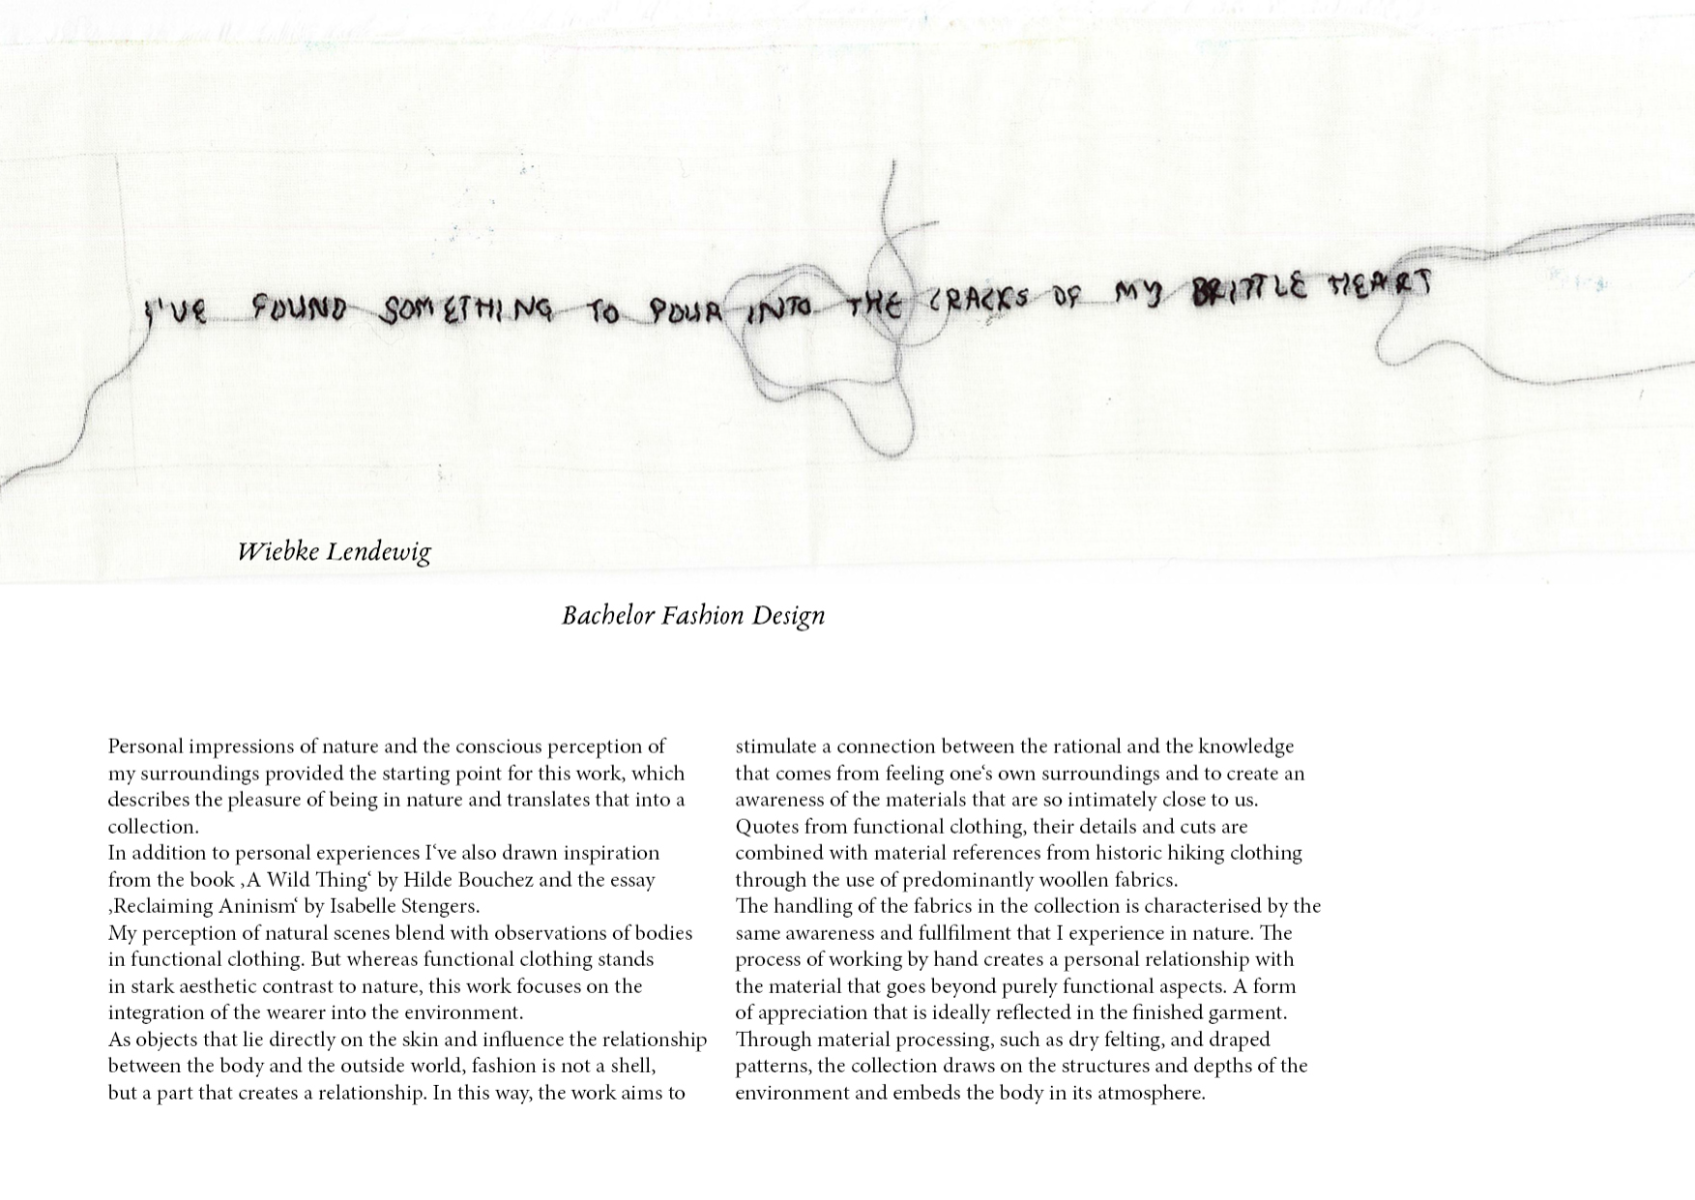 I'VE FOUND SOMETHING TO POUR INTO THE CRACKS OF MY BRITTLE HEART
Wiebke Lendewig
Bachelor Fashion Design
Personal impressions of nature and the conscious perception of
my surroundings provided the starting point for this work, which
describes the pleasure of being in nature and translates that into a
collection.
In addition to personal experiences I‘ve also drawn inspiration
from the book ‚A Wild Thing‘ by Hilde Bouchez and the essay
‚Reclaiming Aninism‘ by Isabelle Stengers.
My perception of natural scenes blend with observations of bodies
in functional clothing. But whereas functional clothing stands
in stark aesthetic contrast to nature, this work focuses on the
integration of the wearer into the environment.
As objects that lie directly on the skin and influence the relationship
between the body and the outside world, fashion is not a shell,
but a part that creates a relationship. In this way, the work aims to
stimulate a connection between the rational and the knowledge
that comes from feeling one‘s own surroundings and to create an
awareness of the materials that are so intimately close to us.
Quotes from functional clothing, their details and cuts are
combined with material references from historic hiking clothing
through the use of predominantly woollen fabrics.
The handling of the fabrics in the collection is characterised by the
same awareness and fullfilment that I experience in nature. The
process of working by hand creates a personal relationship with
the material that goes beyond purely functional aspects. A form
of appreciation that is ideally reflected in the finished garment.
Through material processing, such as dry felting, and draped
patterns, the collection draws on the structures and depths of the
environment and embeds the body in its atmosphere.